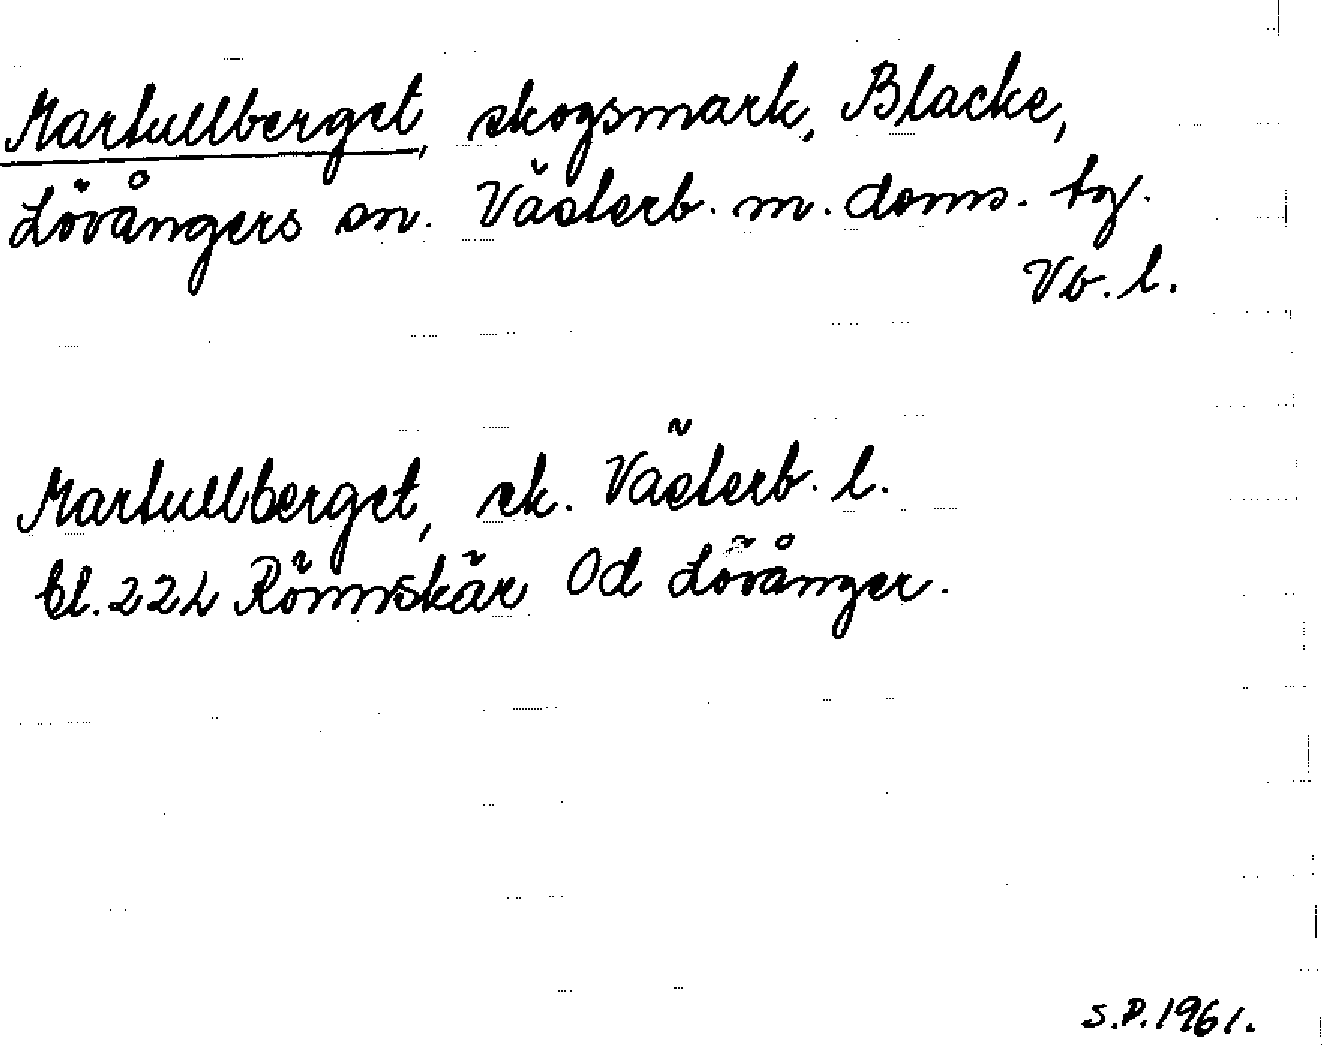 Martullberget, skogsmark, Blacke,
Lövångers sn. Västerb. m. doms. tg.
Vb. l.
Martullberget, sk. Västerb. l.
bl. 22L Rönnskär Od Lövånger.
S.D. 1961.